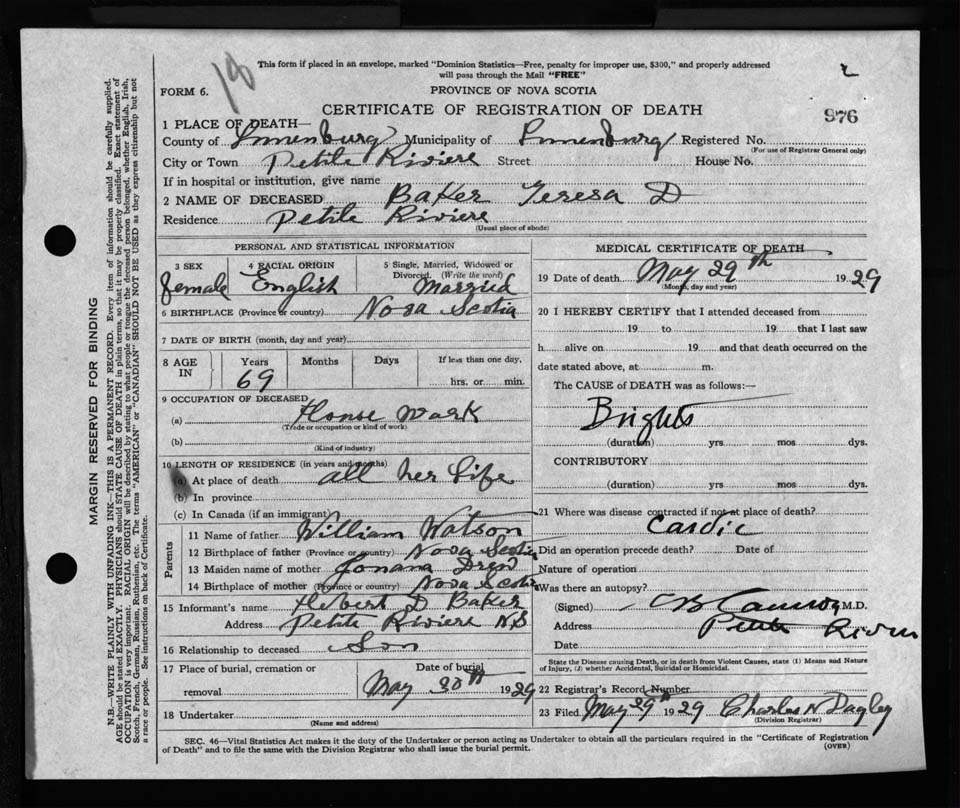 18
This form if placed in an envelope, marked "Dominion Statistics—Free, penalty for improper use, $300," and properly addressed
will pass through the Mail "FREE"
FORM 6.
PROVINCE OF NOVA SCOTIA
CERTIFICATE OF REGISTRATION OF DEATH
976
1 PLACE OF DEATH—
County of Lunenburg Municipality of Lunenburg Registered No.
(For use of Registrar General only)
City or Town Petite Riviere Street House No.
If in hospital or institution, give name
2 NAME OF DECEASED Baker Teresa D
Residence Petite Riviere
(Usual place of abode)
PERSONAL AND STATISTICAL INFORMATION
3 SEX 4 RACIAL ORIGIN 5 Single, Married, Widowed or
Divorced. (Write the word)
female English Married
6 BIRTHPLACE (Province or country) Nova Scotia
7 DATE OF BIRTH (month, day and year)
8 AGE IN Years Months Days If less than one day,
69 hrs. or min.
9 OCCUPATION OF DECEASED
(a) House Work
(Trade or occupation or kind of work)
(b)
(Kind of industry)
10 LENGTH OF RESIDENCE (in years and months)
(a) At place of death all her Life
(b) In province
(c) In Canada (if an immigrant)
Parents
11 Name of father William Watson
12 Birthplace of father (Province or country) Nova Scotia
13 Maiden name of mother Drew
14 Birthplace of mother (Province or country) Nova Scotia
15 Informant's name Hebert D Baker
Address Petite Riviere N.S
16 Relationship to deceased Son
17 Place of burial, cremation or Date of burial
removal May 30th 1929
18 Undertaker
(Name and address)
MEDICAL CERTIFICATE OF DEATH
19 Date of death May 29th 1929
(Month, day and year)
20 I HEREBY CERTIFY that I attended deceased from
19 to 19 that I last saw
h alive on 19 and that death occurred on the
date stated above, at m.
The CAUSE of DEATH was as follows:—
Brights
(duration) yrs. mos. dys.
CONTRIBUTORY
(duration) yrs. mos. dys.
21 Where was disease contracted if not at place of death?
Cardic
Did an operation precede death? Date of
Nature of operation
Was there an autopsy?
(Signed) M.D.
Address Petite Riviere
Date
State the Disease causing Death, or in death from Violent Causes, state (1) Means and Nature
of Injury, (2) whether Accidental, Suicidal or Homicidal.
22 Registrar's Record Number
23 Filed May 29th 1929 Charles N Dagley
(Division Registrar)
SEC. 46—Vital Statistics Act makes it the duty of the Undertaker or person acting as Undertaker to obtain all the particulars required in the "Certificate of Registration
of Death" and to file the same with the Division Registrar who shall issue the burial permit.
(OVER)
MARGIN RESERVED FOR BINDING
N.B.—WRITE PLAINLY WITH UNFADING INK—THIS IS A PERMANENT RECORD. Every item of information should be carefully supplied.
AGE should be stated EXACTLY. PHYSICIANS should STATE CAUSE OF DEATH in plain terms, so that it may be properly classified. Exact statement of
OCCUPATION is very important. RACIAL ORIGIN will be described by stating to what people or tongue the deceased person belonged, whether English, Irish,
Scotch, French, German, Russian, Ruthenian, etc. The terms "AMERICAN" or "CANADIAN" SHOULD NOT BE USED as they express citizenship but not
a race or people. See instructions on back of Certificate.